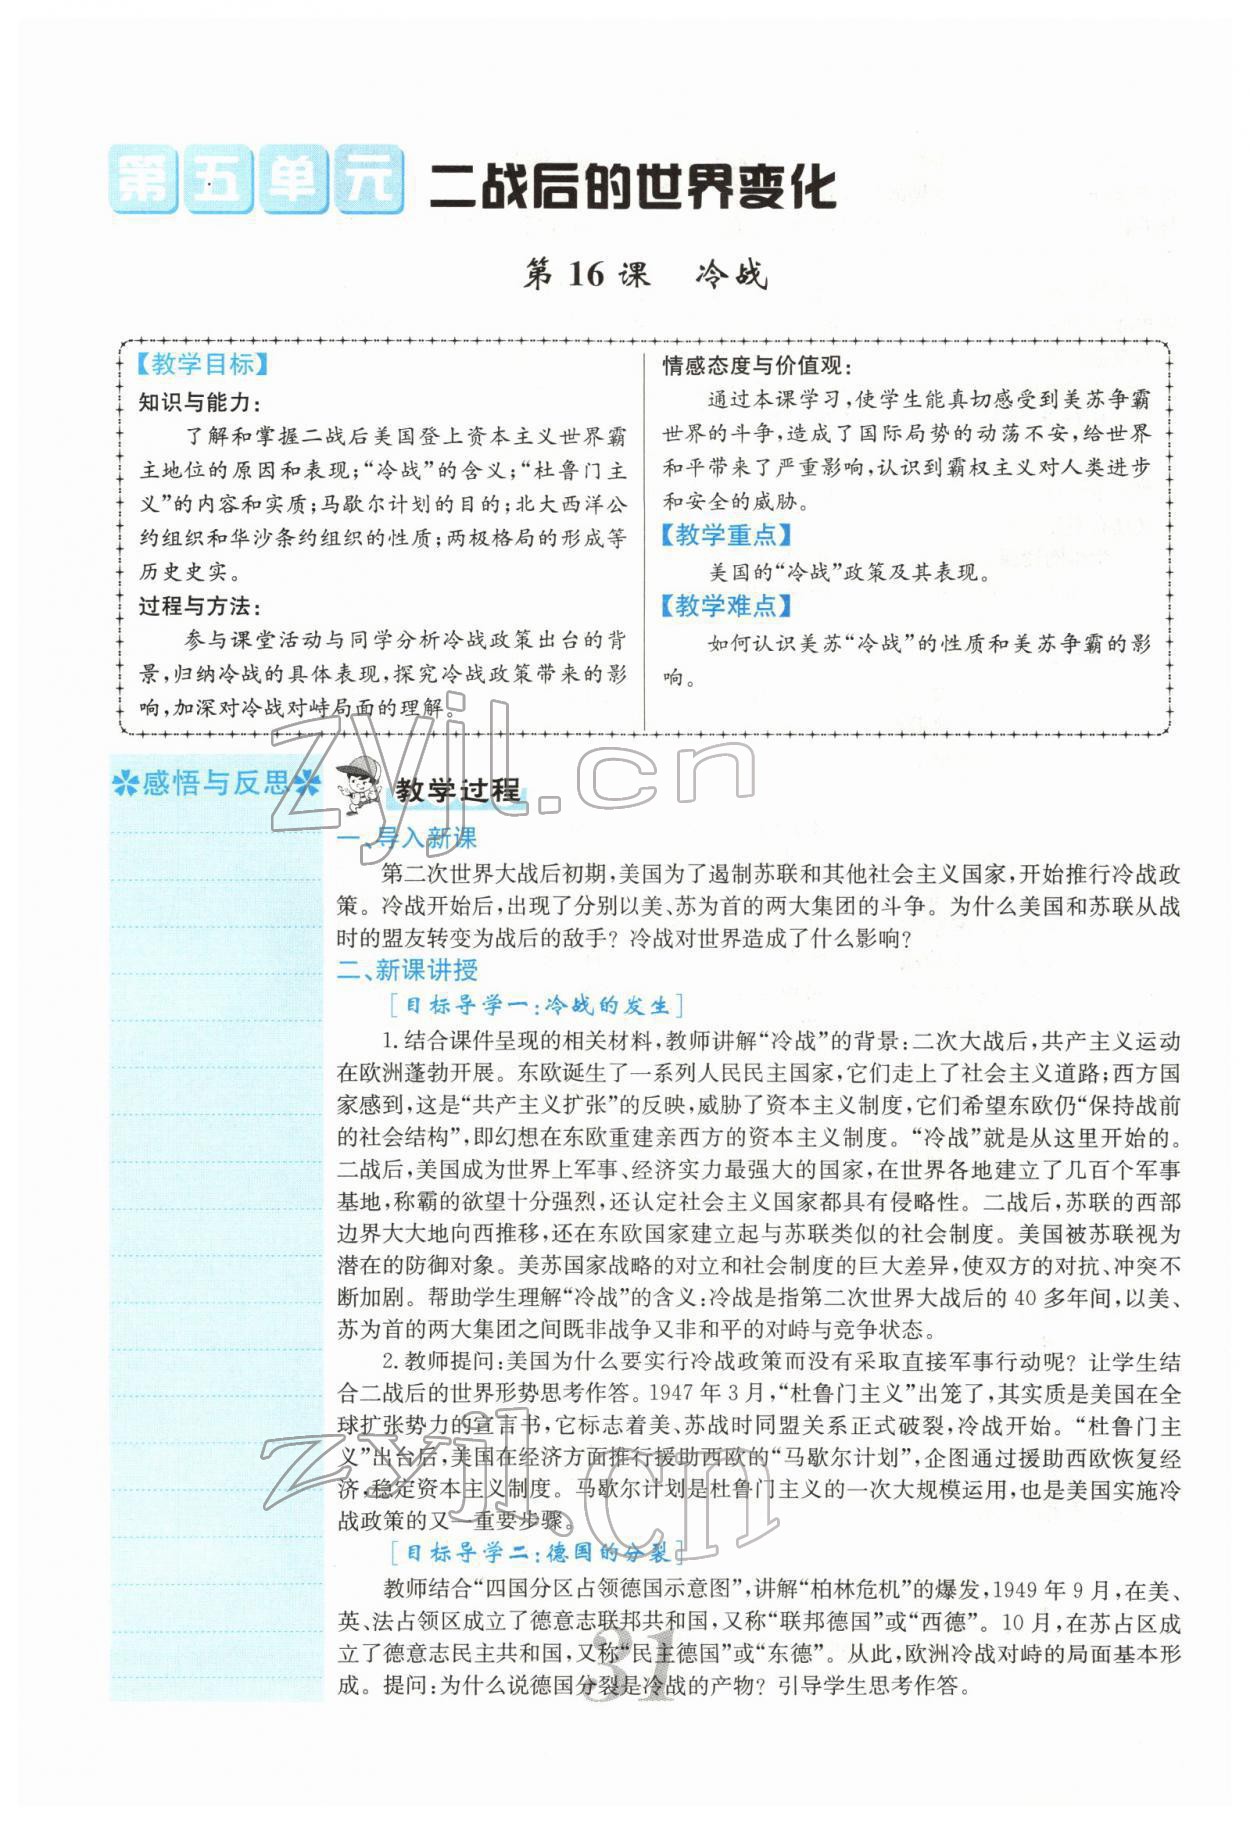 第五单元 二战后的世界变化
第 16 课 冷战
【教学目标】
知识与能力:
了解和掌握二战后美国登上资本主义世界霸
主地位的原因和表现;“冷战”的含义;“杜鲁门主
义”的内容和实质;马歇尔计划的目的;北大西洋公
约组织和华沙条约组织的性质;两极格局的形成等
历史史实。
过程与方法:
参与课堂活动与同学分析冷战政策出台的背
景,归纳冷战的具体表现,探究冷战政策带来的影
响,加深对冷战对峙局面的理解。
情感态度与价值观:
通过本课学习,使学生能真切感受到美苏争霸
世界的斗争,造成了国际局势的动荡不安,给世界
和平带来了严重影响,认识到霸权主义对人类进步
和安全的威胁。
【教学重点】
美国的“冷战”政策及其表现。
【教学难点】
如何认识美苏“冷战”的性质和美苏争霸的影
响。
zyjl.cn
感悟与反思
教学过程
一、导入新课
第二次世界大战后初期,美国为了遏制苏联和其他社会主义国家,开始推行冷战政
策。冷战开始后,出现了分别以美、苏为首的两大集团的斗争。为什么美国和苏联从战
时的盟友转变为战后的敌手?冷战对世界造成了什么影响?
二、新课讲授
[目标导学一:冷战的发生]
1. 结合课件呈现的相关材料,教师讲解“冷战”的背景:二次大战后,共产主义运动
在欧洲蓬勃开展。东欧诞生了一系列人民民主国家,它们走上了社会主义道路;西方国
家感到,这是“共产主义扩张”的反映,威胁了资本主义制度,它们希望东欧仍“保持战前
的社会结构”,即幻想在东欧重建亲西方的资本主义制度。“冷战”就是从这里开始的。
二战后,美国成为世界上军事、经济实力最强大的国家,在世界各地建立了几百个军事
基地,称霸的欲望十分强烈,还认定社会主义国家都具有侵略性。二战后,苏联的西部
边界大大地向西推移,还在东欧国家建立起与苏联类似的社会制度。美国被苏联视为
潜在的防御对象。美苏国家战略的对立和社会制度的巨大差异,使双方的对抗、冲突不
断加剧。帮助学生理解“冷战”的含义:冷战是指第二次世界大战后的 40 多年间,以美、
苏为首的两大集团之间既非战争又非和平的对峙与竞争状态。
2. 教师提问:美国为什么要实行冷战政策而没有采取直接军事行动呢?让学生结
合二战后的世界形势思考作答。1947 年 3 月,“杜鲁门主义”出笼了,其实质是美国在全
球扩张势力的宣言书,它标志着美、苏战时同盟关系正式破裂,冷战开始。“杜鲁门主
义”出台后,美国在经济方面推行援助西欧的“马歇尔计划”,企图通过援助西欧恢复经
济,稳定资本主义制度。马歇尔计划是杜鲁门主义的一次大规模运用,也是美国实施冷
战政策的又一重要步骤。
zyjl.cn
[目标导学二:德国的分裂]
教师结合“四国分区占领德国示意图”,讲解“柏林危机”的爆发,1949 年 9 月,在美、
英、法占领区成立了德意志联邦共和国,又称“联邦德国”或“西德”。10 月,在苏占区成
立了德意志民主共和国,又称“民主德国”或“东德”。从此,欧洲冷战对峙的局面基本形
成。提问:为什么说德国分裂是冷战的产物?引导学生思考作答。
31